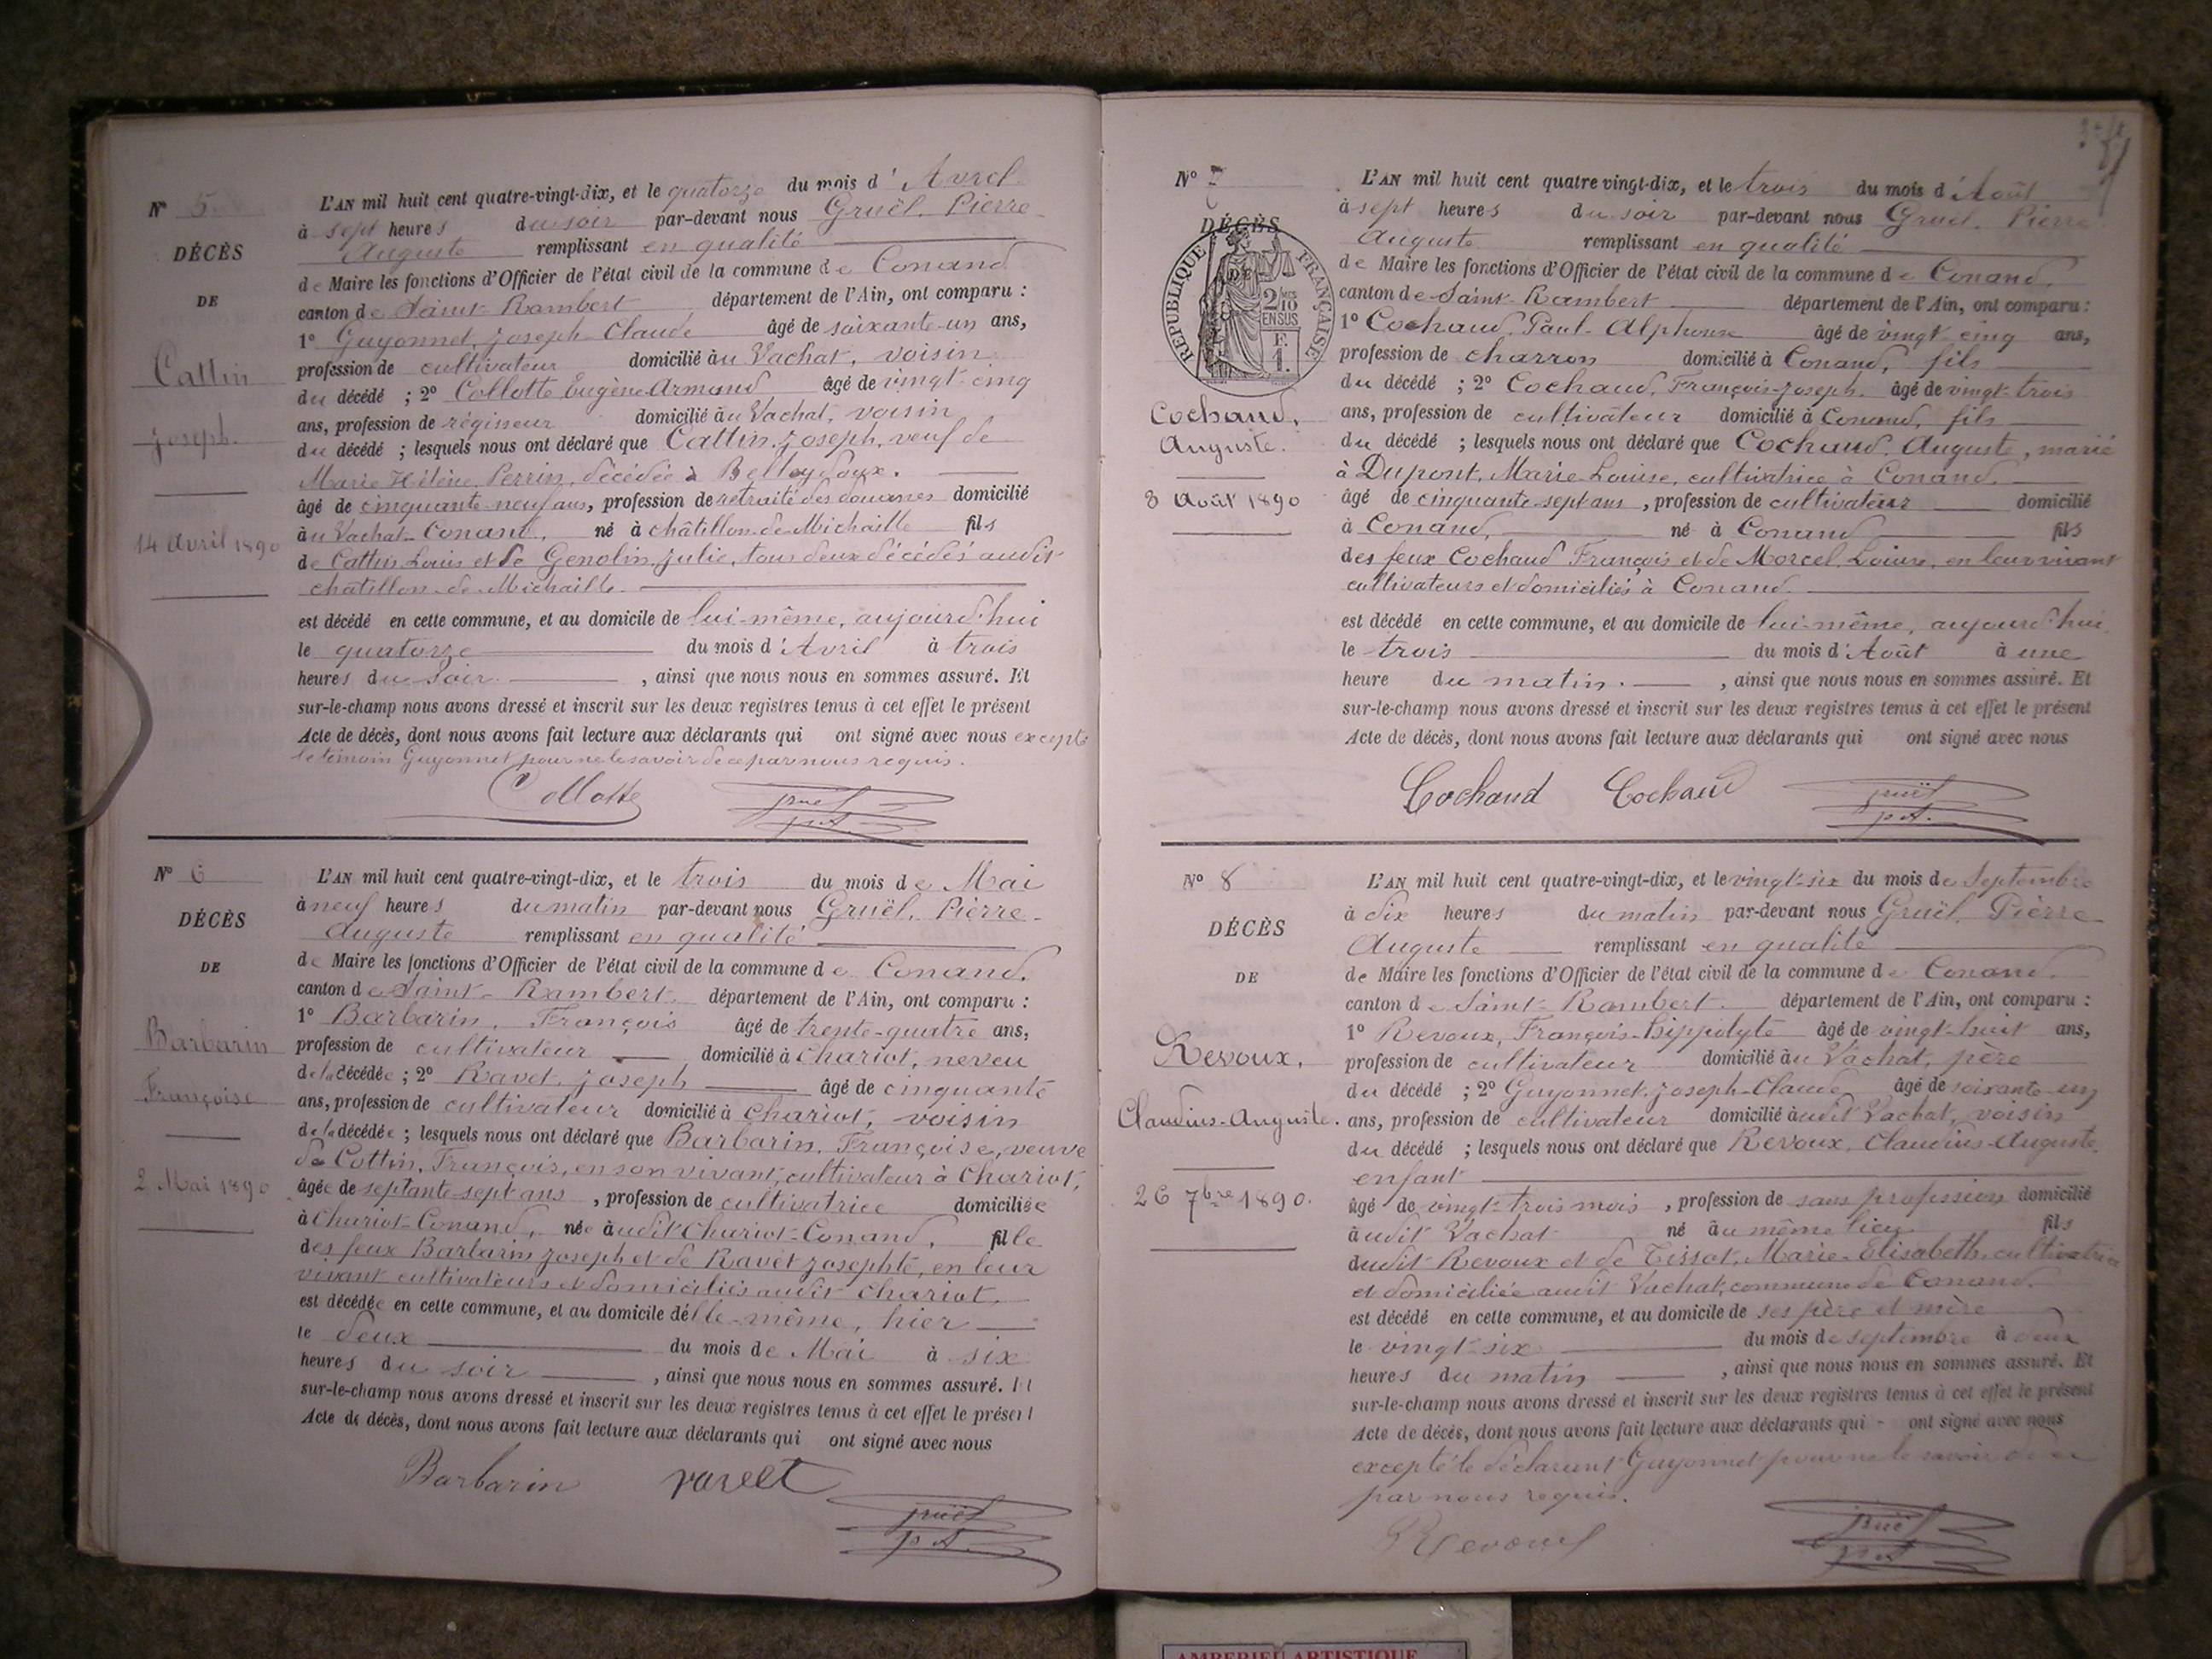 N° 5
DÉCÈS
DE
Cattin
Joseph.
14 Avril 1890
L'AN mil huit cent quatre-vingt-dix, et le quatorze du mois d'Avril
à sept heures du soir par-devant nous Gruël, Pierre-
Auguste remplissant en qualité
de Maire les fonctions d'Officier de l'état civil de la commune de Conand
canton de Saint-Rambert département de l'Ain, ont comparu :
1° Guyonnet, Joseph-Claude âgé de soixante-un ans,
profession de cultivateur domicilié au Vachat, voisin
du décédé ; 2° Collotte, Eugène-Armand âgé de vingt-cinq
ans, profession de régisseur domicilié au Vachat, voisin
du décédé ; lesquels nous ont déclaré que Cattin, Joseph, veuf de
Marie Hélène Perrin, décédée à Belleydoux.
âgé de cinquante-neuf ans, profession de retraité des douanes domicilié
au Vachat-Conand, né à châtillon-de-Michaille fils
de Cattin Louis et de Genolin, Julie, tous deux décédés audit
châtillon-de-Michaille.
est décédé en cette commune, et au domicile de lui-même, aujourd'hui
le quatorze du mois d'Avril à trois
heures du soir. , ainsi que nous nous en sommes assuré. Et
sur-le-champ nous avons dressé et inscrit sur les deux registres tenus à cet effet le présent
Acte de décès, dont nous avons fait lecture aux déclarants qui ont signé avec nous excepté
le témoin Guyonnet pour ne le savoir de ce par nous requis.
Collotte Gruël
N° 6
DÉCÈS
DE
Barbarin
Françoise
2 Mai 1890
L'AN mil huit cent quatre-vingt-dix, et le trois du mois de Mai
à neuf heures du matin par-devant nous Gruël, Pierre-
Auguste remplissant en qualité
de Maire les fonctions d'Officier de l'état civil de la commune de Conand.
canton de Saint-Rambert. département de l'Ain, ont comparu :
1° Barbarin, François âgé de trente-quatre ans,
profession de cultivateur domicilié à chariot, neveu
de la décédée ; 2° Ravet, Joseph âgé de cinquante
ans, profession de cultivateur domicilié à chariot, voisin
de la décédée ; lesquels nous ont déclaré que Barbarin, Françoise, veuve
de Cottin, François, en son vivant, cultivateur à Chariot,
âgée de septante-sept ans , profession de cultivatrice domiciliée
à Chariot-Conand, née audit Chariot-Conand. fille
des feux Barbarin Joseph et de Ravet Josephte, en leur
vivant cultivateurs et domiciliés audit Chariot.
est décédée en cette commune, et au domicile d'elle-même, hier
le deux du mois de Mai à six
heures du soir , ainsi que nous nous en sommes assuré. Et
sur-le-champ nous avons dressé et inscrit sur les deux registres tenus à cet effet le présent
Acte de décès, dont nous avons fait lecture aux déclarants qui ont signé avec nous
Barbarin ravet
Gruël
N° 7
DÉCÈS
DE
RÉPUBLIQUE FRANÇAISE
2/10 EN SUS
F. 1.
Cochaud,
Auguste.
3 Août 1890
L'AN mil huit cent quatre vingt-dix, et le trois du mois d'Août
à sept heures du soir par-devant nous Gruël, Pierre
Auguste remplissant en qualité
de Maire les fonctions d'Officier de l'état civil de la commune de Conand,
canton de Saint-Rambert département de l'Ain, ont comparu :
1° Cochaud, Paul-Alphonse âgé de vingt cinq ans,
profession de charron domicilié à Conand, fils
du décédé ; 2° Cochaud, François-Joseph. âgé de vingt-trois
ans, profession de cultivateur domicilié à Conand, fils
du décédé ; lesquels nous ont déclaré que Cochaud, Auguste, marié
à Dupont, Marie-Louise, cultivatrice à Conand.
âgé de cinquante-sept ans , profession de cultivateur domicilié
à Conand, né à Conand fils
des feux Cochaud François et de Morcel, Louise, en leur vivant
cultivateurs et domiciliés à Conand.
est décédé en cette commune, et au domicile de lui-même, aujourd'hui
le trois du mois d'Août à une
heure du matin. , ainsi que nous nous en sommes assuré. Et
sur-le-champ nous avons dressé et inscrit sur les deux registres tenus à cet effet le présent
Acte de décès, dont nous avons fait lecture aux déclarants qui ont signé avec nous
Cochaud Cochaud Gruël
N° 8
DÉCÈS
DE
Revoux,
Claudius-Auguste.
26 7bre 1890.
L'AN mil huit cent quatre-vingt-dix, et le vingt-six du mois de Septembre
à dix heures du matin par-devant nous Gruël, Pierre-
Auguste remplissant en qualité
de Maire les fonctions d'Officier de l'état civil de la commune de Conand.
canton de Saint-Rambert. département de l'Ain, ont comparu :
1° Revoux, François-hippolyte âgé de vingt-huit ans,
profession de cultivateur domicilié au Vachat, père
du décédé ; 2° Guyonnet, Joseph-Claude âgé de soixante-un
ans, profession de cultivateur domicilié audit Vachat, voisin
du décédé ; lesquels nous ont déclaré que Revoux, Claudius-Auguste,
enfant
âgé de vingt-trois mois , profession de sans profession domicilié
audit Vachat né au même lieu fils
dudit Revoux et de Tissot, Marie-Elisabeth, cultivatrice
et domiciliée audit Vachat, commune de Conand.
est décédé en cette commune, et au domicile de ses père et mère
le vingt-six du mois de septembre à deux
heures du matin , ainsi que nous nous en sommes assuré. Et
sur-le-champ nous avons dressé et inscrit sur les deux registres tenus à cet effet le présent
Acte de décès, dont nous avons fait lecture aux déclarants qui - ont signé avec nous
excepté le déclarant Guyonnet pour ne le savoir de ce
par nous requis.
Revoux Gruël
AMBERIEU ARTISTIQUE